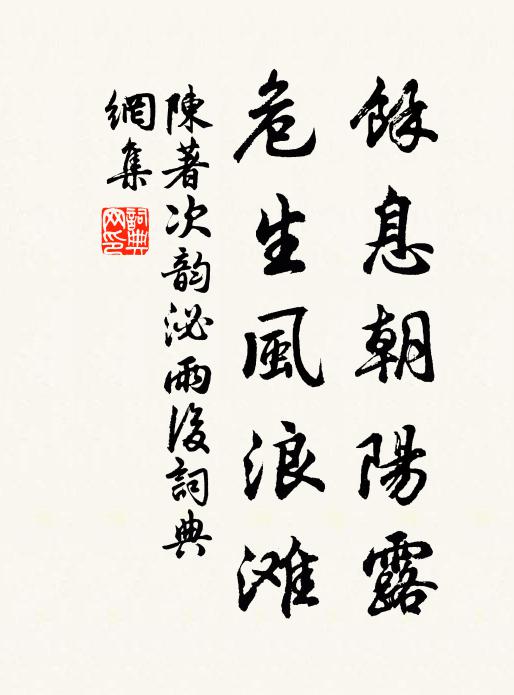 餘息朝陽露
危生風浪滩
陳著次韵泌雨後詞典
網集
詞典网印